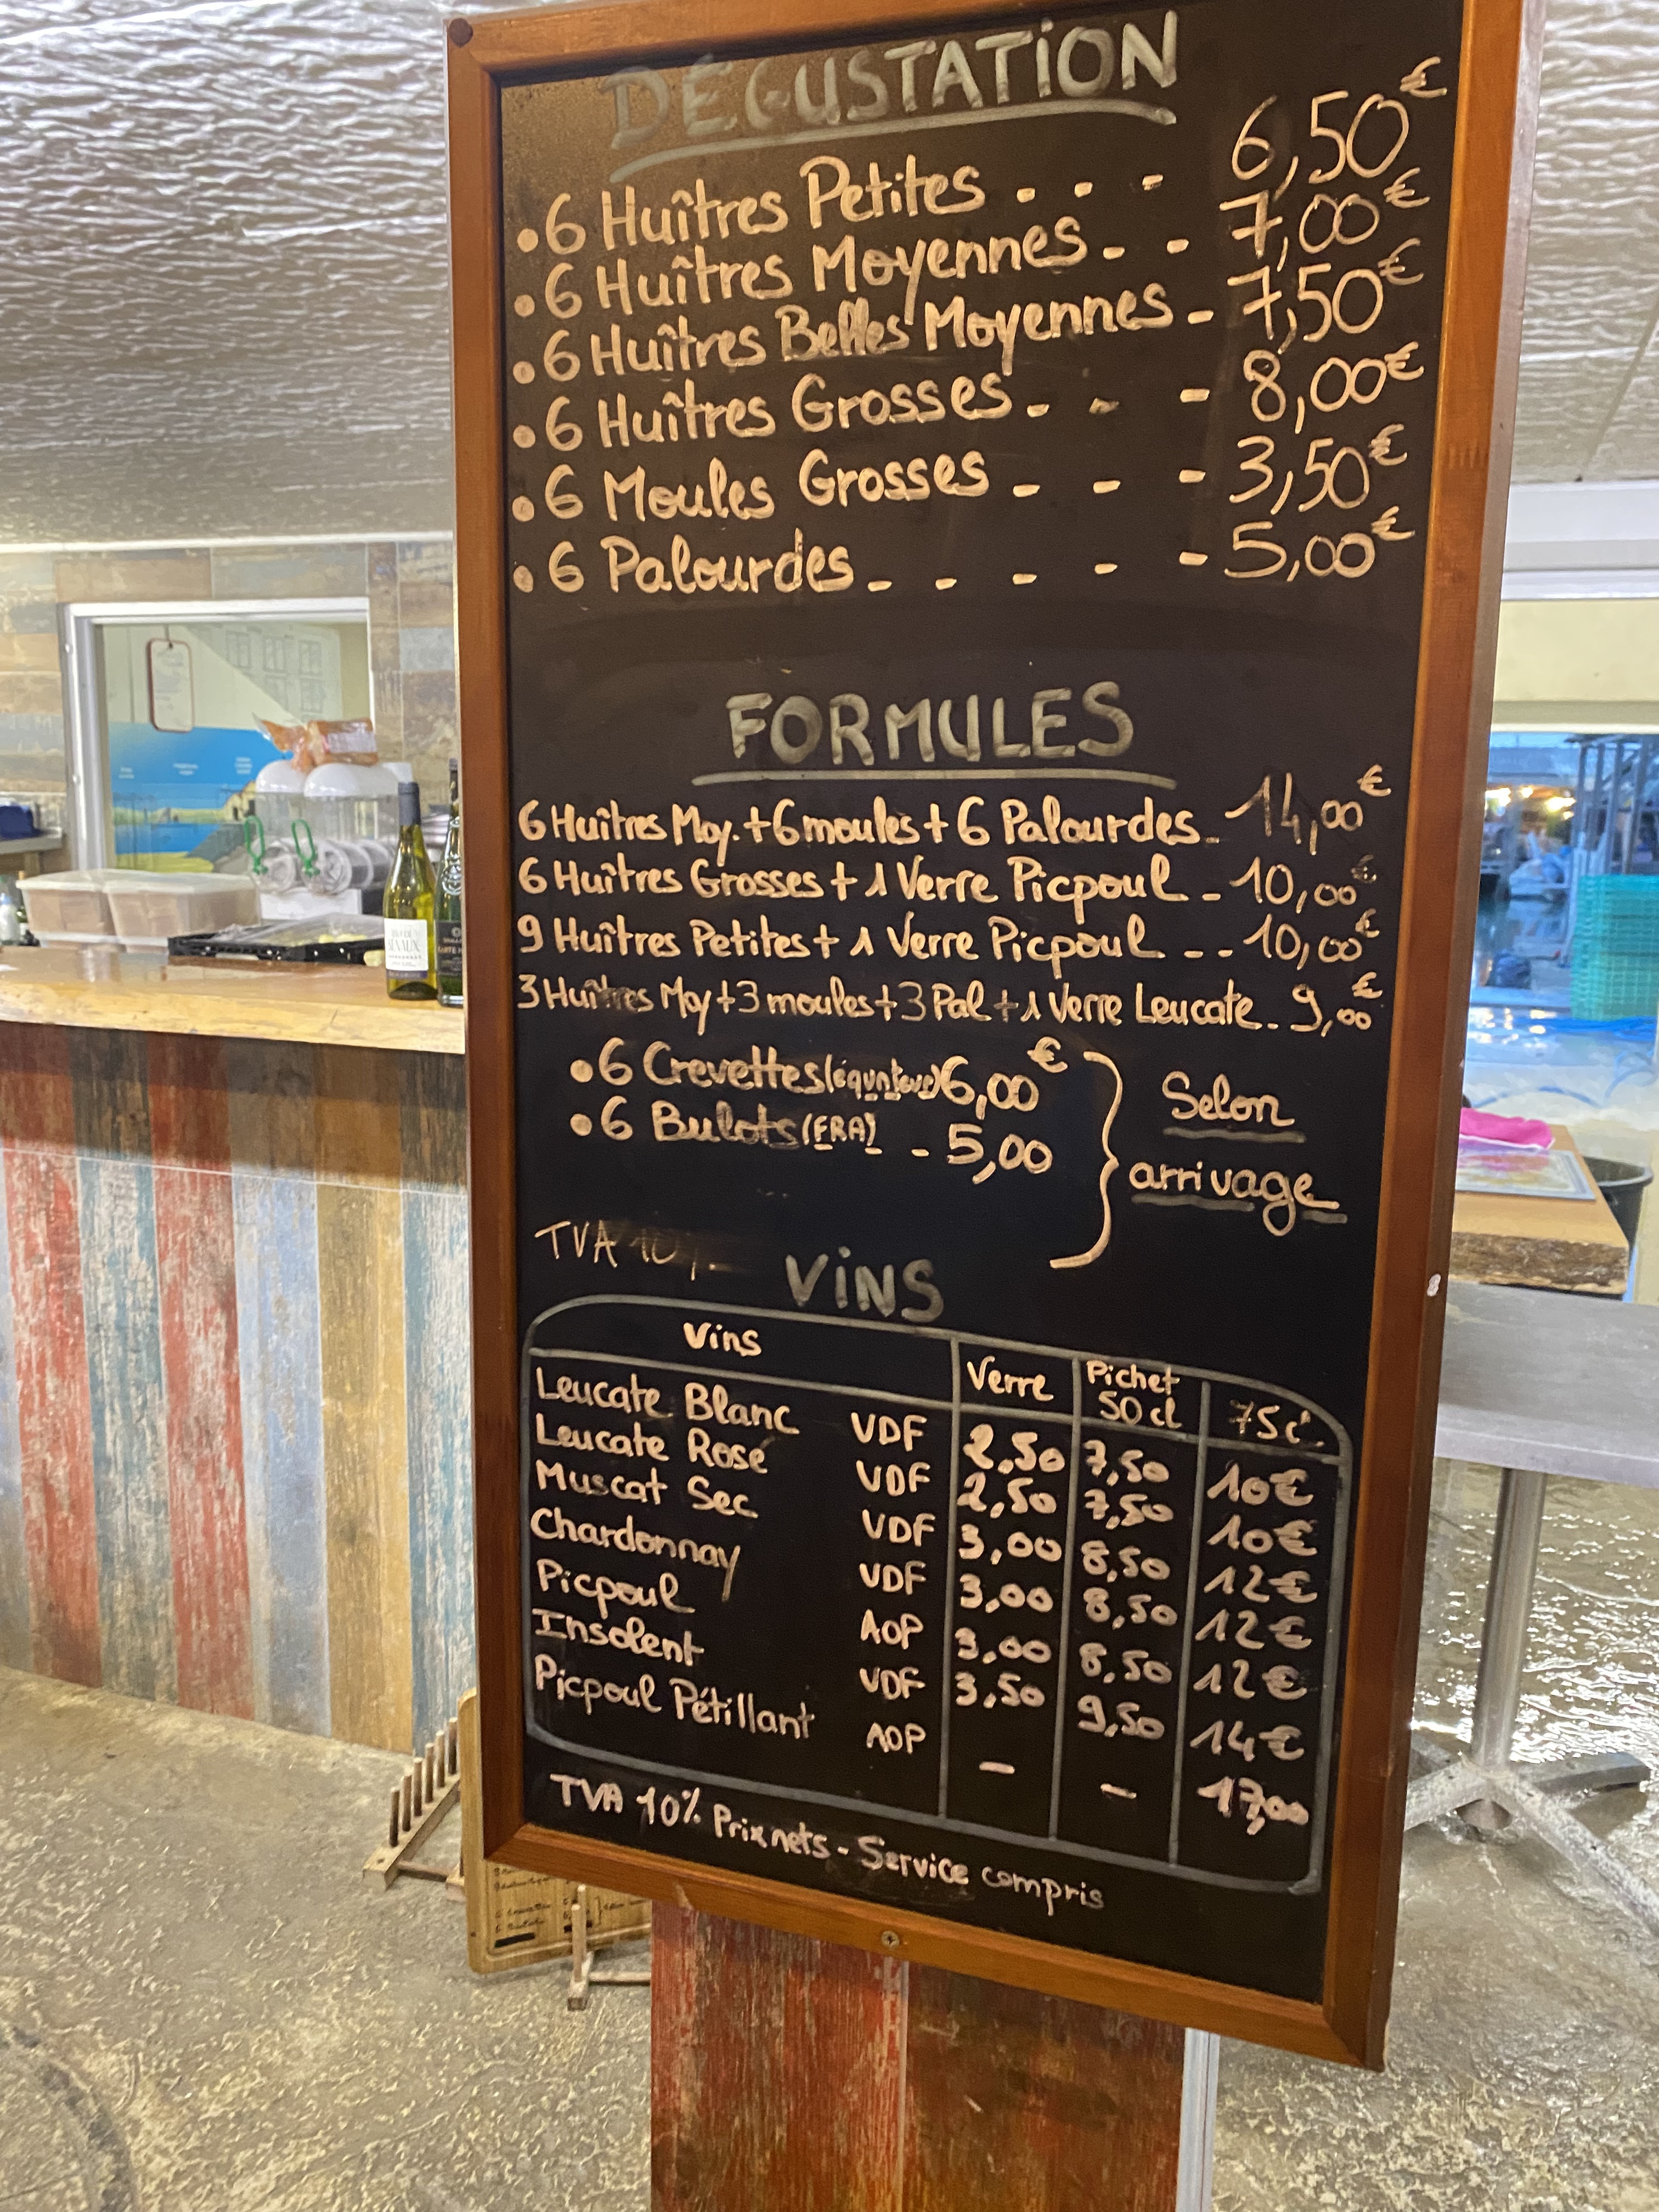 DÉGUSTATION
• 6 Huîtres Petites . - - 6,50€
• 6 Huîtres Moyennes. - 7,00€
• 6 Huîtres Belles Moyennes - 7,50€
• 6 Huîtres Grosses. - - 8,00€
• 6 Moules Grosses - - - 3,50€
• 6 Palourdes - - - - - 5,00€
FORMULES
6 Huîtres Moy. + 6 moules + 6 Palourdes - 14,00€
6 Huîtres Grosses + 1 Verre Picpoul - 10,00€
9 Huîtres Petites + 1 Verre Picpoul - - 10,00€
3 Huîtres Moy + 3 moules + 3 Pal + 1 Verre Leucate - 9,00€
• 6 Crevettes 6,00€
• 6 Bulots (FRA) - 5,00
Selon
arrivage
TVA 10
ViNS
Vins Verre Pichet 50 cl 75c
Leucate Blanc VDF 2,50 7,50 10€
Leucate Rosé VDF 2,50 7,50 10€
Muscat Sec VDF 3,00 8,50 12€
Chardonnay VDF 3,00 8,50 12€
Picpoul AOP 3,00 8,50 12€
Insolent VDF 3,50 9,50 14€
Picpoul Pétillant AOP - - 17,00
TVA 10% Prix nets - Service compris